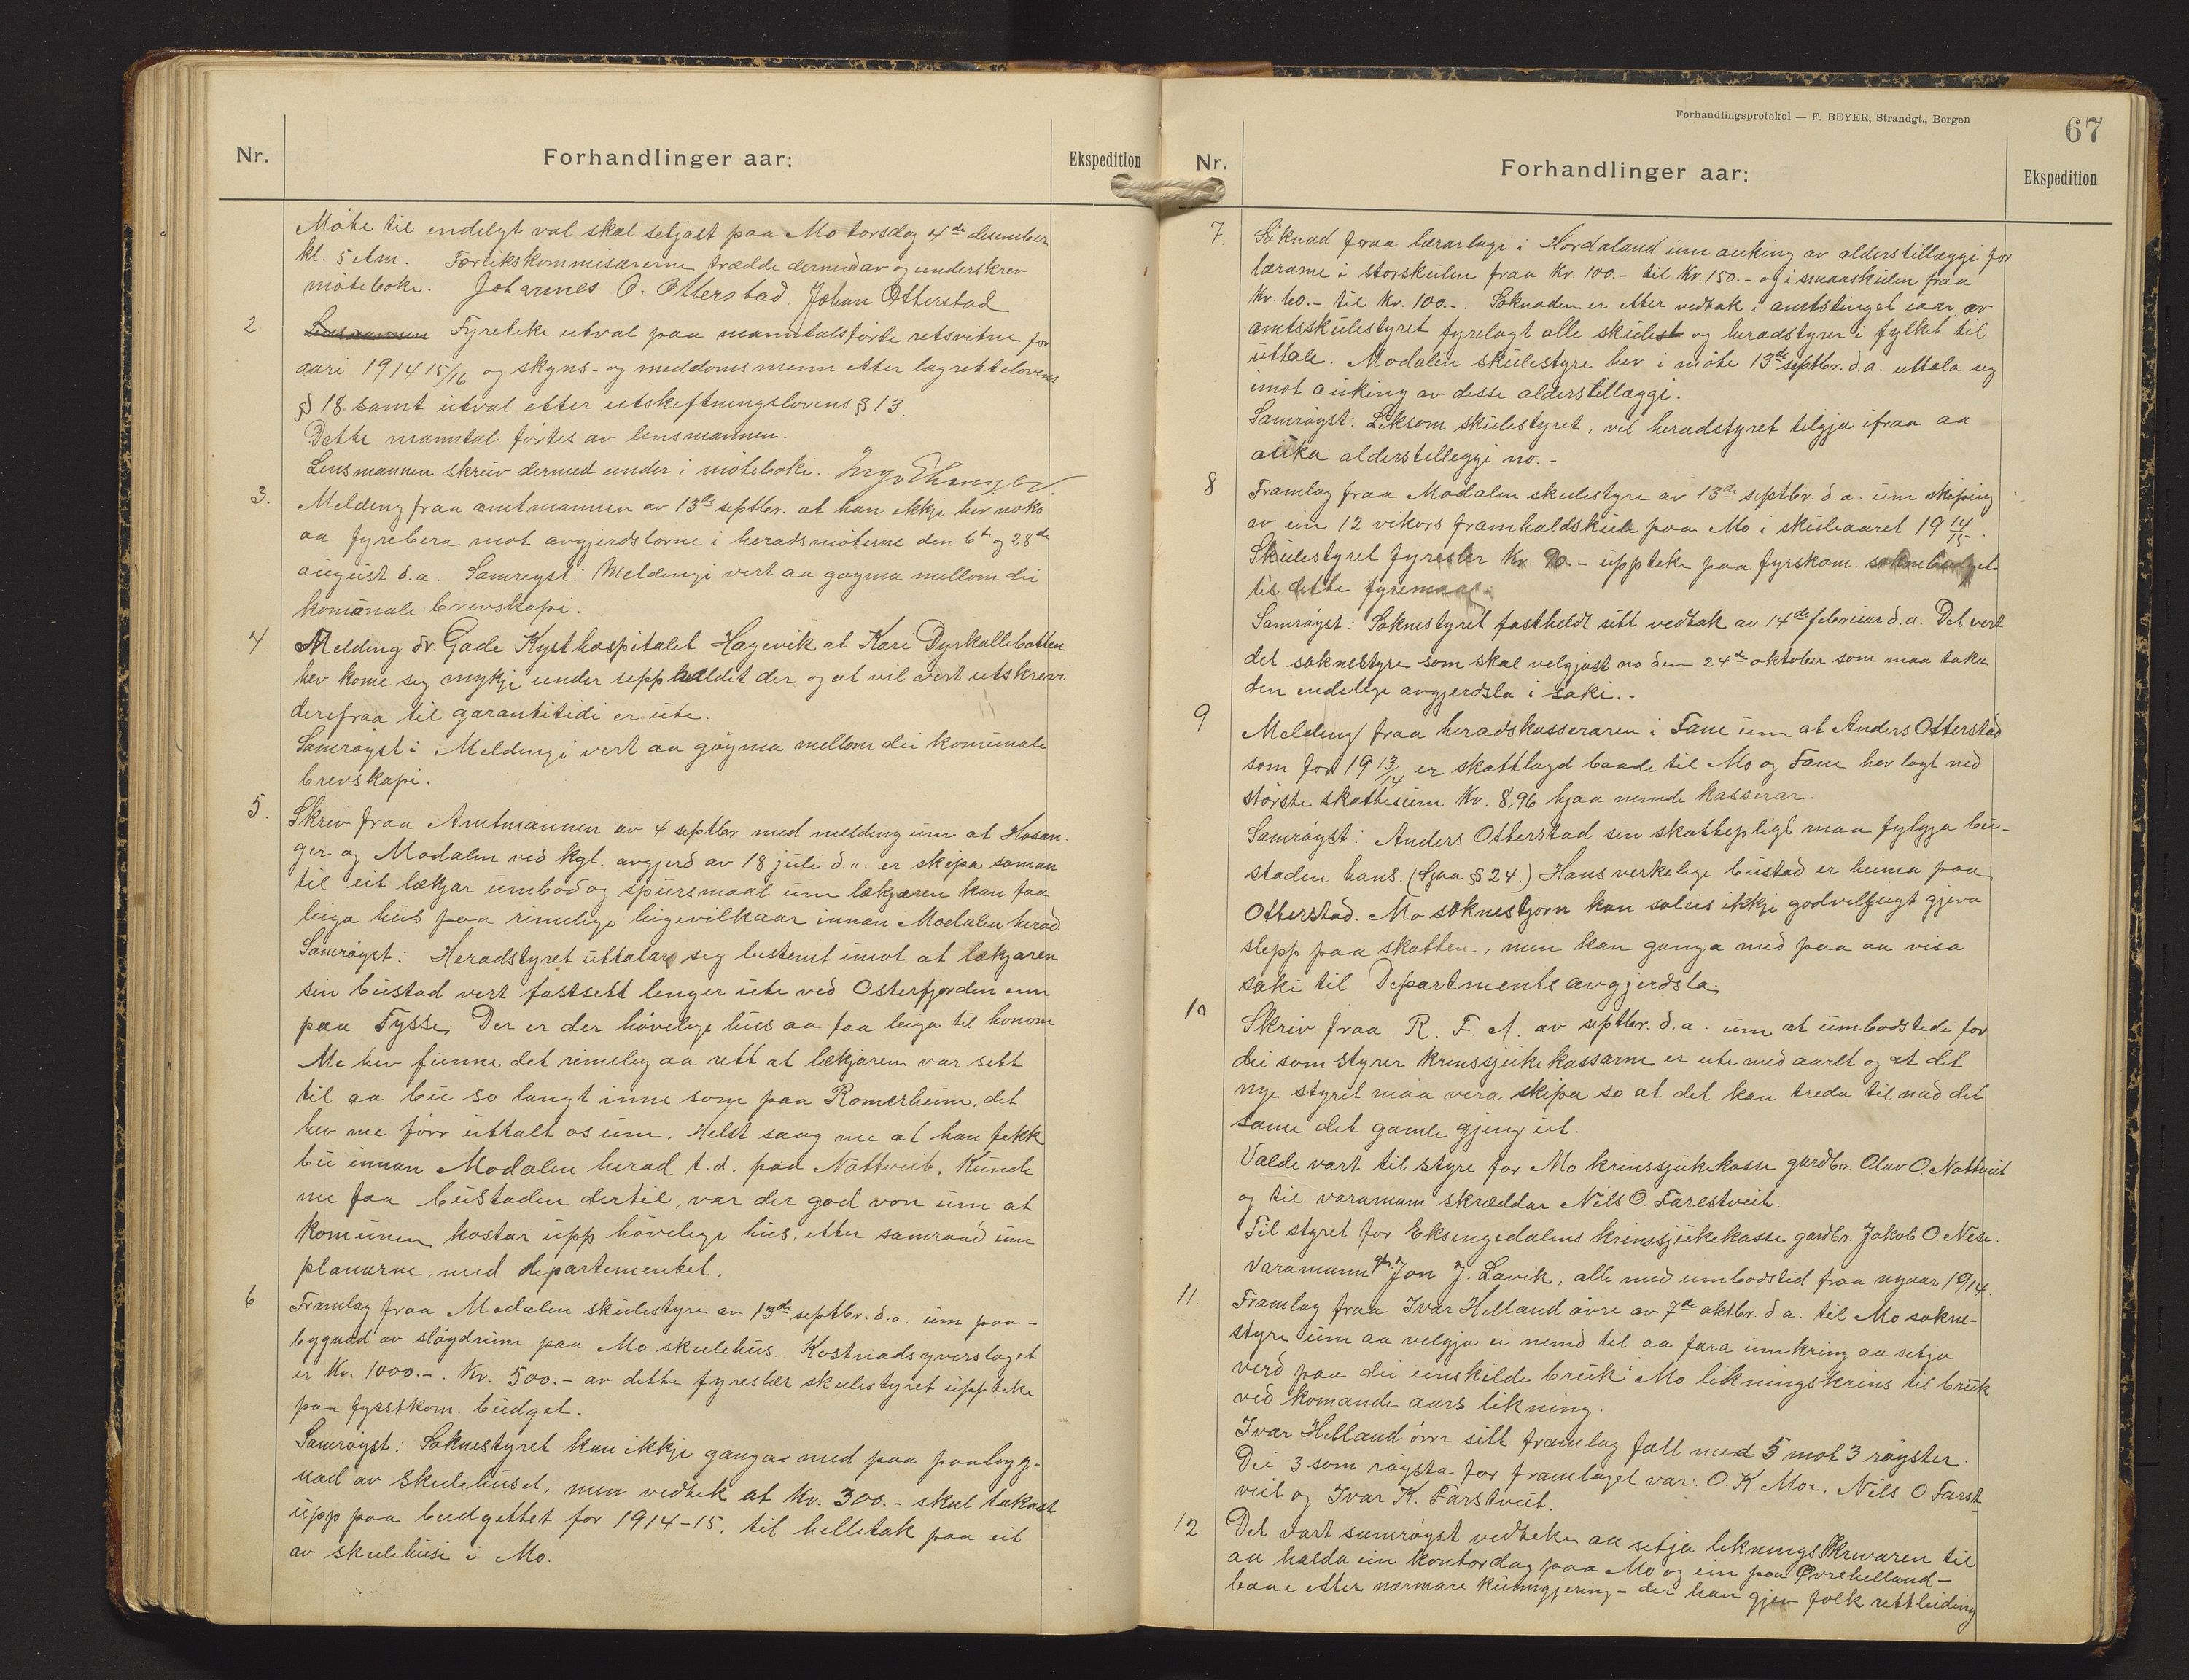 Nr.
Forhandlinger aar:
Ekspedition
Møte til endelegt val skal setjast paa Mo torsdag 4de desember
kl. 5 etm. Forlikskommisærerne trædde dermed av og underskrev
møteboki. Johannes O. Otterstad. Johan Otterstad
2 Lensmannen Fyreteke utval paa manntalsførte retsvitne for
aari 1914 15/16 og skyns- og meddomsmenn etter lagrettelovens
§ 18. samt utval etter utskiftningslovens § 13.
Dette manntal førtes av lensmannen.
Lensmannen skreiv dermed under i møteboki.
3. Melding fraa amtmannen av 13de septbr. at han ikkje hev noko
aa fyrebera mot avgjerdslorne i heradsmøterne den 6te og 28de
august d.a. Samrøyst: Meldingi vert aa gøyma mellom dei
komunale brevskapi.
4. Melding dr. Gade Kysthospitalet Hagevik at Kari Dyrkollbotten
hev kome seg mykje under upphaldet der og at vil vert utskrevi
derifraa til garantitidi er ute.
Samrøyst: Meldingi vert aa gøyma mellom dei komunale
brevskapi.
5. Skriv fraa Amtmannen av 4 septbr. med melding um at Hosan-
ger og Modalen ved kgl. avgjerd av 18 juli d.a. er skipa saman
til eit lækjar umbod og spursmaal um lækjaren kan faa
leiga hus paa rimelige leigevilkaar innan Modalen herad
Samrøyst: Heradstyret uttalar seg bestemt imot at lækjaren
sin bustad vert fastsett lenger ute ved Osterfjorden enn
paa Tysse. Der er der høvelege hus aa faa leiga til honom
Me hev funne det rimeleg aa rett at lækjaren var sett
til aa bu so langt inne som paa Romerheim, det
hev me førr uttalt os um. Helst saag me at han fekk
bu innan Modalen herad t.d. paa Nattveit. Kunde
me faa bustaden dertil, var der god von um at
komunen kostar upp høvelege hus, etter samraad um
planarne, med departementet.
6 Framlag fraa Modalen skulestyre av 13de septbr. d.a. um paa-
bygnad av sløydrum paa Mo skulehus. Kostnadsyverslaget
er Kr. 1000.-. Kr. 500.- av dette fyreslær skulestyret uppteke
paa fysstkom. budget.
Samrøyst: Soknestyret kan ikkje ganga med paa paabyg-
nad av skulehuset, men vedtek at Kr. 300.- skal takast
upp paa budgettet for 1914-15, til helletak paa eit
av skulehusi i Mo.
Forhandlingsprotokol — F. BEYER, Strandgt., Bergen
67
Nr.
Forhandlinger aar:
Ekspedition
7. Søknad fraa lærarlagi i Hordaland um auking av alderstillæggi for
lærarne i storskulen fraa Kr. 100.- til Kr. 150.- og i smaaskulen fraa
Kr. 60.- til Kr. 100.-. Søknaden er etter vedtak i amtstinget iaar av
amtsskulestyret fyrelagt alle skulest og heradstyrer i fylket til
uttale. Modalen skulestyre hev i møte 13de septbr. d.a. uttala seg
imot auking av desse alderstillæggi.
Samrøyst: Liksom skulestyret, vil heradstyret tilgja ifraa aa
auka alderstilleggi no.-
8 Framlag fraa Modalen skulestyre av 13de septbr. d.a. um skiping
av ein 12 vikors framhaldskule paa Mo i skuleaaret 19 14/15.
Skulestyret fyreslær Kr. 90.- uppteke paa fyrskom. soknebudget
til dette fyremaal.
Samrøyst: Soknestyret fastheldt sitt vedtak av 14de februar d.a. Det vert
det soknestyre som skal velgjast no den 24de oktober som maa taka
den endelege avgjerdsla i saki.-
9 Melding fraa heradskasseraren i Fane um at Anders Otterstad
som for 19 13/14 er skattlagd baade til Mo og Fane hev lagt ned
største skattesum Kr. 8,96 hjaa nemde kasserar.
Samrøyst: Anders Otterstad sin skattepligt maa fylgja bu-
staden hans. (Sjaa § 24.) Hans verkelige bustad er heima paa
Otterstad. Mo soknestjorn kan soleis ikkje godvilljugt gjeva
slepp paa skatten, men kan ganga med paa aa visa
saki til Departmentsavgjerdsla.
10 Skriv fraa R. F. A. av septbr. d.a. um at umbodstidi for
dei som styrer krinssjukekassarne er ute med aaret og at det
nye styret maa vera skipa so at det kan treda til med det
same det gamle gjeng ut.
Valde vart til styre for Mo krinssjukekasse gardbr. Olav O. Nattveit
og til varamann skræddar Nils O. Farestveit.
Til styret for Eksingedalens krinssjukekasse gardbr. Jakob O. Nese.
Varamann gbr Jon J. Lavik, alle med umbodstid fraa nyaar 1914.
11. Framlag fraa Ivar Helland øvre av 7de oktbr. d.a. til Mo sokne-
styre um aa velgja ei nemd til aa fara umkring aa setja
verd paa dei einskilde bruk i Mo likningskrins til bruk
ved komande aars likning.
Ivar Helland øvre sitt framlag fall med 5 mot 3 røyster.
Dei 3 som røysta for framlaget var: O. K. Moe, Nils O Farst
veit og Ivar K. Farstveit.
12 Det vart samrøyst vedteke aa setja likningsskrivaren til
aa halda ein kontordag paa Mo og ein paa Øvrehelland-
bane etter nærmare kunngjering - der han gjev folk rettleiding